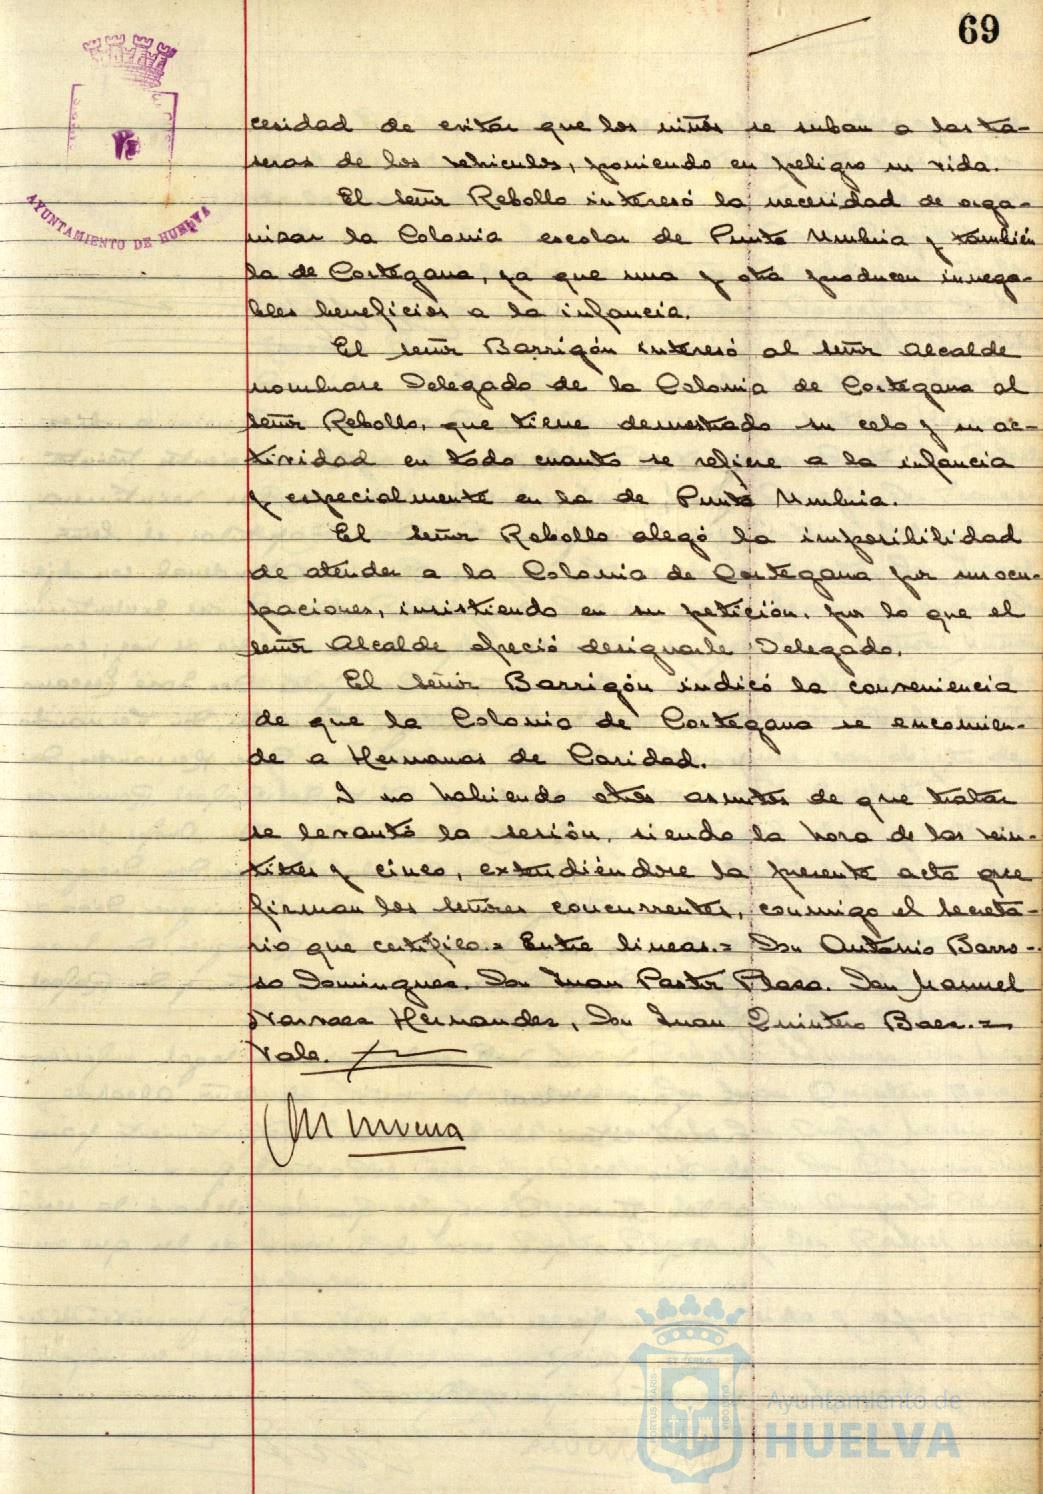 69
AYUNTAMIENTO DE HUELVA
cesidad de evitar que los niños se suban a las tra-
seras de los vehiculos, poniendo en peligro su vida.
El señor Rebollo interesó la necesidad de orga-
nizar la Colonia escolar de Punta Umbria y también
la de Cortegana, ya que una y otra producen innega-
bles beneficios a la infancia.
El señor Barrigón interesó al señor Alcalde
nombrase Delegado de la Colonia de Cortegana al
señor Rebollo, que tiene demostrado su celo y su ac-
tividad en todo cuanto se refiere a la infancia
y especialmente en la de Punta Umbria.
El señor Rebollo alegó la imposibilidad
de atender a la Colonia de Cortegana por sus ocu-
paciones, insistiendo en su petición, por lo que el
señor Alcalde ofreció designarle Delegado.
El señor Barrigón indicó la conveniencia
de que la Colonia de Cortegana se encomien-
de a Hermanas de Caridad.
Y no habiendo otros asuntos de que tratar
se levantó la sesión, siendo la hora de las vein-
titres y cinco, extendiéndose la presente acta que
firman los señores concurrentes, conmigo el Secreta-
rio que certifico.= Entre lineas.= Don Antonio Barro-
so Dominguez. Don Juan Pastor Plaza. Don Manuel
Narvaez Hernandez, Don Juan Quintero Baez.=
Vale.
PORTUS MARIS
ET TERRE
CUSTODIA
Ayuntamiento de
HUELVA